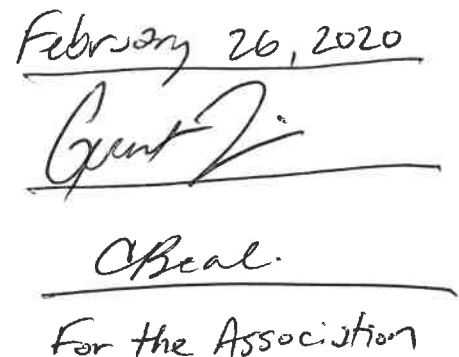 February 26, 2020
CBeal.
For the Association